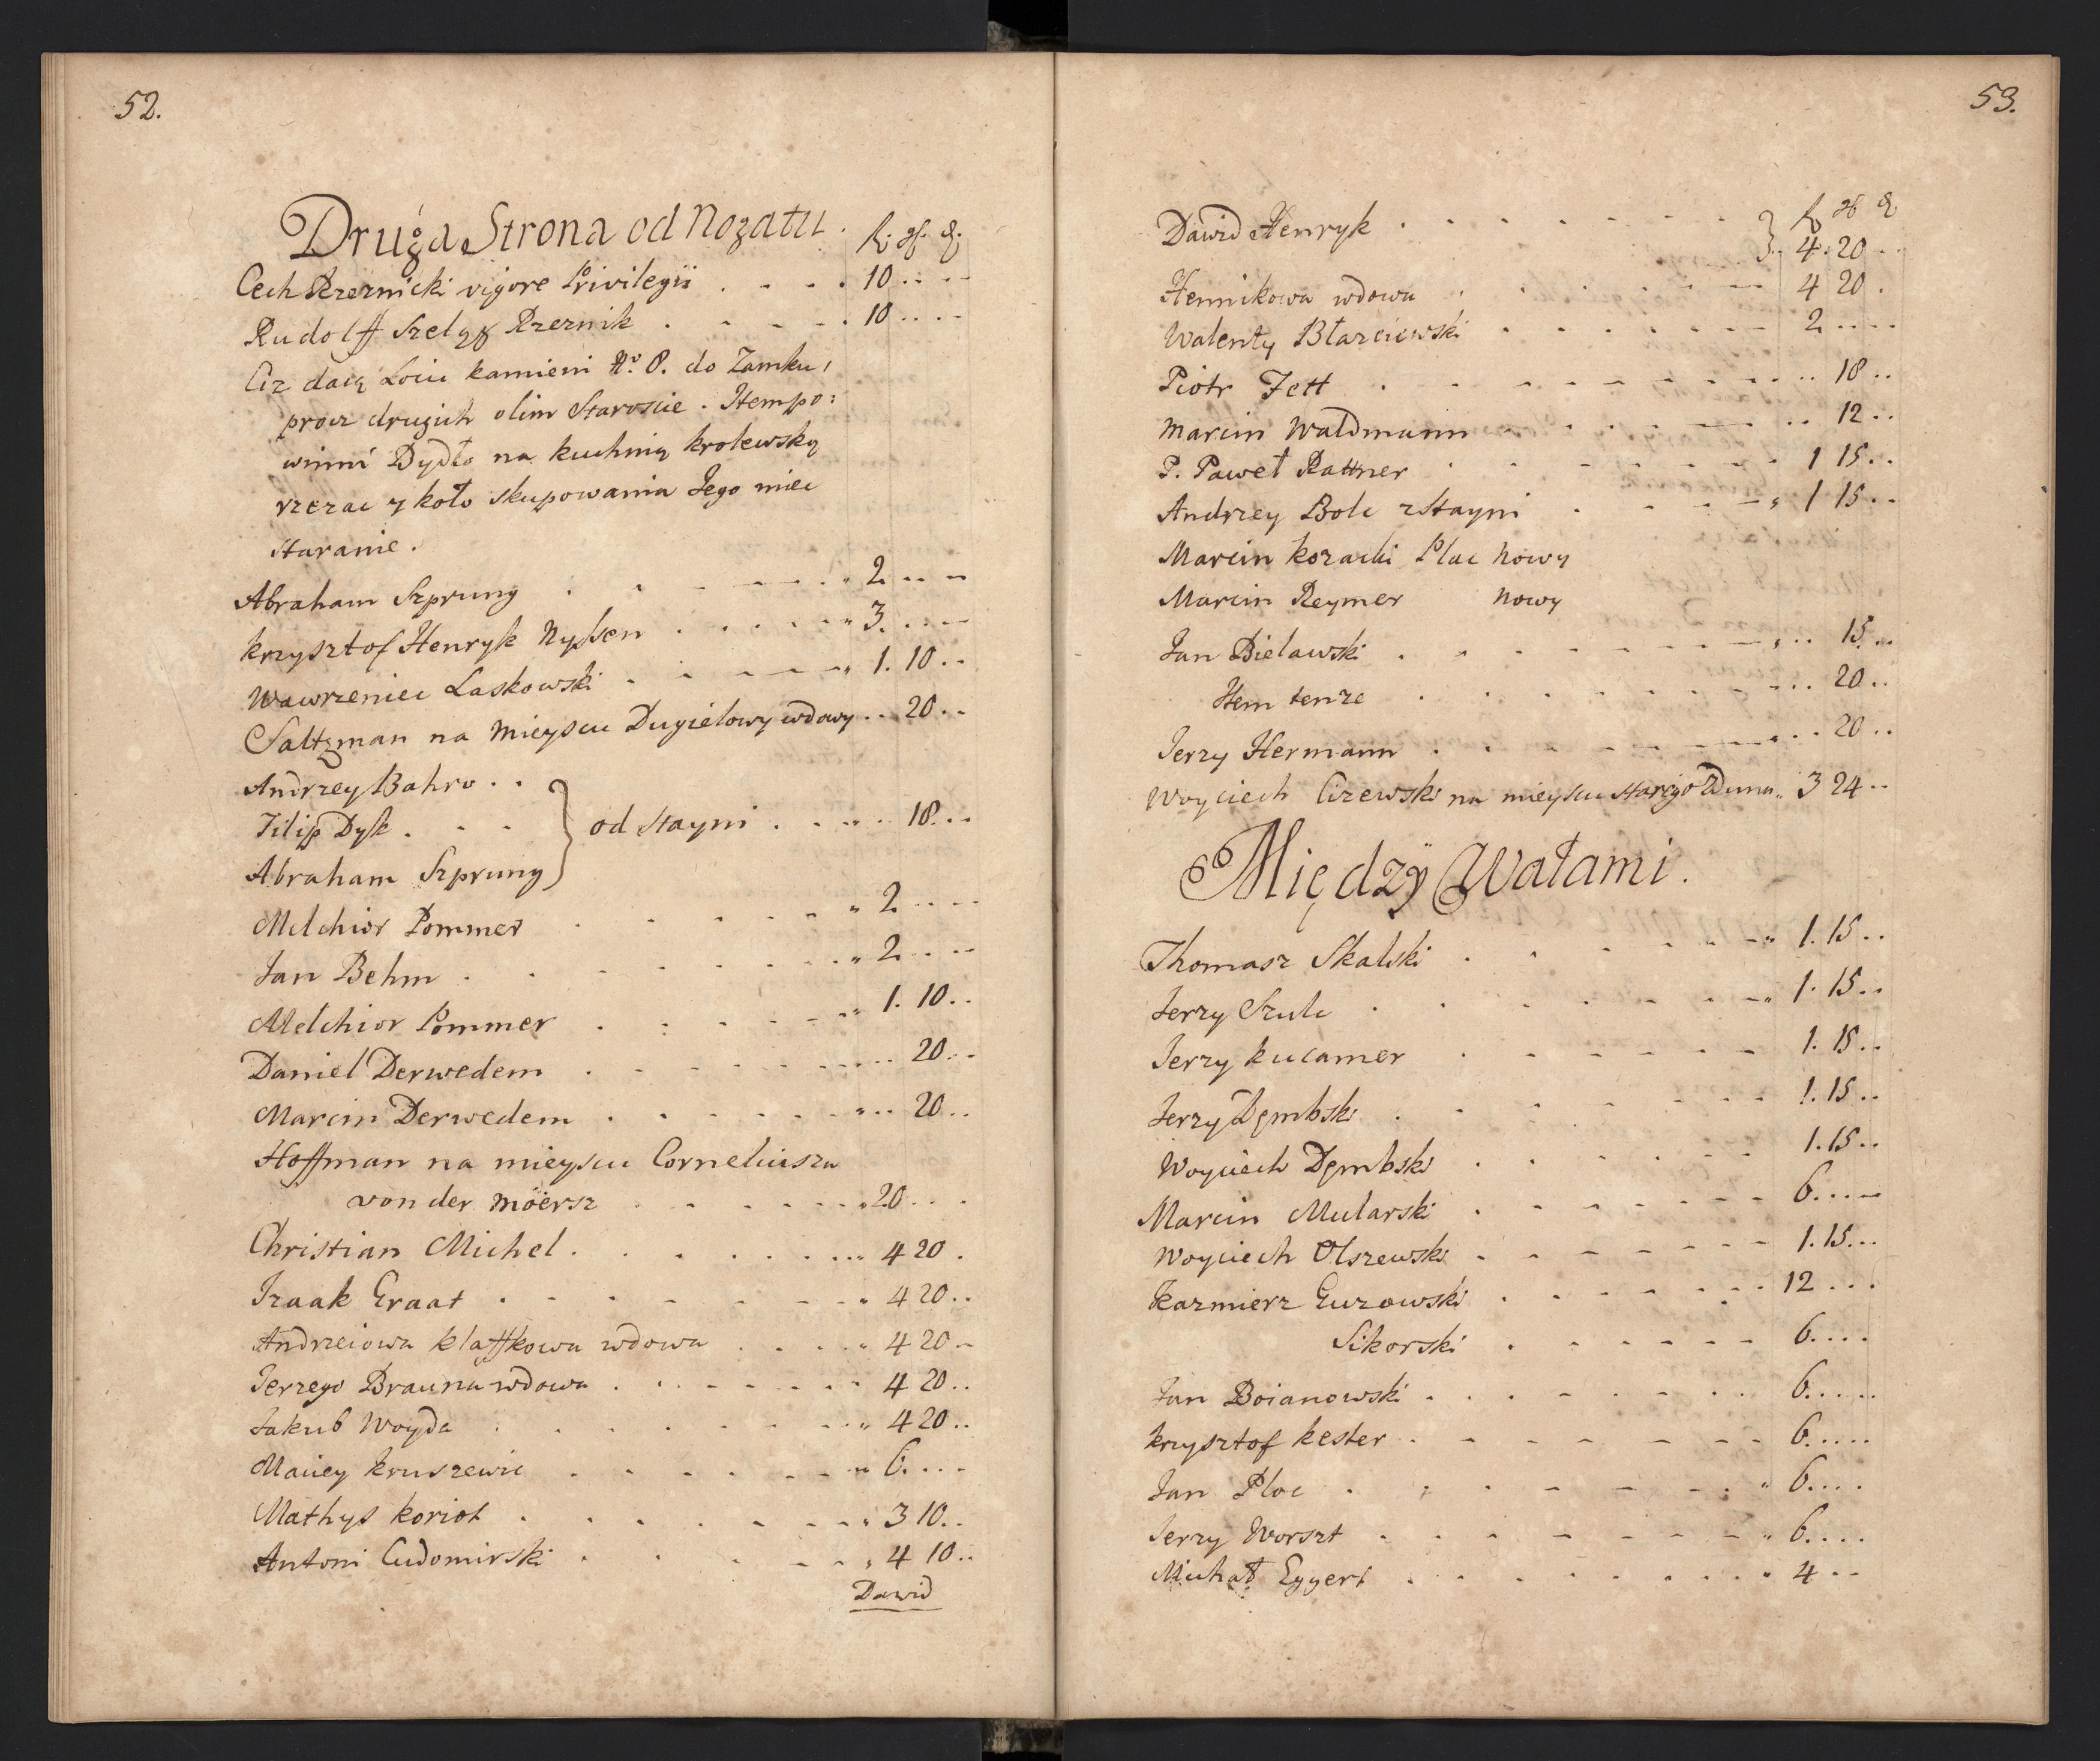 52.
Druga Strona od Nogatu. fl. gr. d.
Cech Rzeznicki vigore Privilegii . . . . 10 .. --
Rudolff Szelgz Rzeznik . . . . . 10 .. --
Ciz daią Łoiu kamieni No. 8. do Zamku,
procz drugich olim Staroscie. Item po:
winni Bydło na kuchnią krolewską
rzezac y koło skupowania Jego miec
staranie.
Abraham Szprung . . . . . 2 .. --
krzysztof Henryk Nyssen . . . . . 3. .. --
Wawrzeniec Laskowski . . . . . 1. 10 ..
Saltzman na mieyscu Dugielowy wdowy .. 20 ..
Andrzey Bahro . .
Filip Dyk . . . } od stayni . . . . 18 ..
Abraham Szprung
Melchior Pommer . . . . . . 2 .. --
Jan Behm . . . . . . . 2 .. --
Melchior Pommer . . . . . 1. 10 ..
Daniel Derwedem . . . . . . . . 20 ..
Marcin Derwedem . . . . . . . . 20 ..
Hoffman na mieyscu Corneliusza
von der Möersz . . . . . . 20 . . .
Christian Michel . . . . . . 4 20 .
Izaak Graat . . . . . . . 4 20 ..
Andrzeiowa klaffkowa wdowa . . . . 4 20 -
Jerzego Brauna wdowa . . . . . . 4 20 ..
Jakub Woyda . . . . . . . 4 20 ..
Maciey kruszewic . . . . . . 6. ...
Mathys koriot . . . . . . . 3 10 ..
Antoni Cudomirski . . . . . 4 10 ..
Dawid
53.
Dawid Henryk . . . . . . . fl gr d
} 4. 20 ..
Hennikowa wdowa . . . . . . 4 20 .
Walenty Błarciewski . . . . . . 2 ....
Piotr Fett . . . . . . . . . 18 ..
Marcin Waldmann . . . . . . 12 ..
P. Paweł Rattner . . . . . . 1 15 ..
Andrzey Bolc z Stayni . . . . 1 15 ..
Marcin kozacki Plac Nowy
Marcin Reymer Nowy
Jan Bielawski . . . . . . . . 15 ..
Item tenze . . . . . . . . 20 ..
Jerzy Hermann . . . . . . . . 20 ..
Woyciech Cizewski na mieyscu starego Zduna 3 24 ..
Między Wałami.
Thomasz Skalski . . . . . . 1. 15 ..
Jerzy Szulc . . . . . . . 1. 15 ..
Jerzy kucamer . . . . . . 1. 15 ..
Jerzy Dęmbski . . . . . . 1. 15 ..
Woyciech Dęmbski . . . . . . 1. 15 ..
Marcin Mularski . . . . . . 6 ....
Woyciech Olszewski . . . . . . 1. 15 ..
Kazmierz Gurowski . . . . . . 12 ...
Sikorski . . . . . . 6 ....
Jan Boianowski . . . . . . . 6 ....
krzysztof kester . . . . . . . 6 ....
Jan Ploc . . . . . . . 6 ....
Jerzy Worszt . . . . . . . 6 ....
Michał Eggert . . . . . . . 4 ..